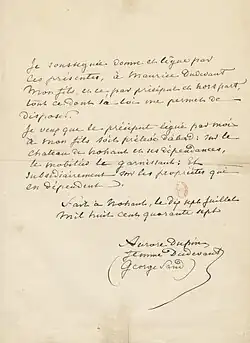 Je soussignée donne et lègue par
ces présentes, à Maurice Dudevant
mon fils, et ce par préciput et hors part,
tout ce dont la loi me permet de
disposer.
Je veux que le préciput légué par moi
à mon fils soit prélevé d'abord : sur le
château de nohant et ses dépendances,
le mobilier le garnissant ; et
subsidiairement sur les propriétés qui
en dépendent.
Fait à nohant, le dix sept juillet
mil huit cent quarante sept
Aurore Dupin
femme Dudevant
(George Sand)